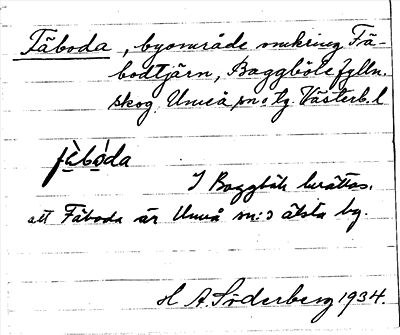 Fäboda, byområde omkring Fä-
bodtjärn, Baggböle fjälln.
skog, Umeå sn o tg. Västerb. l
fäboda
I Baggböle berättas,
att Fäboda är Umeå sn:s älsta by.
H A. Söderberg 1934.